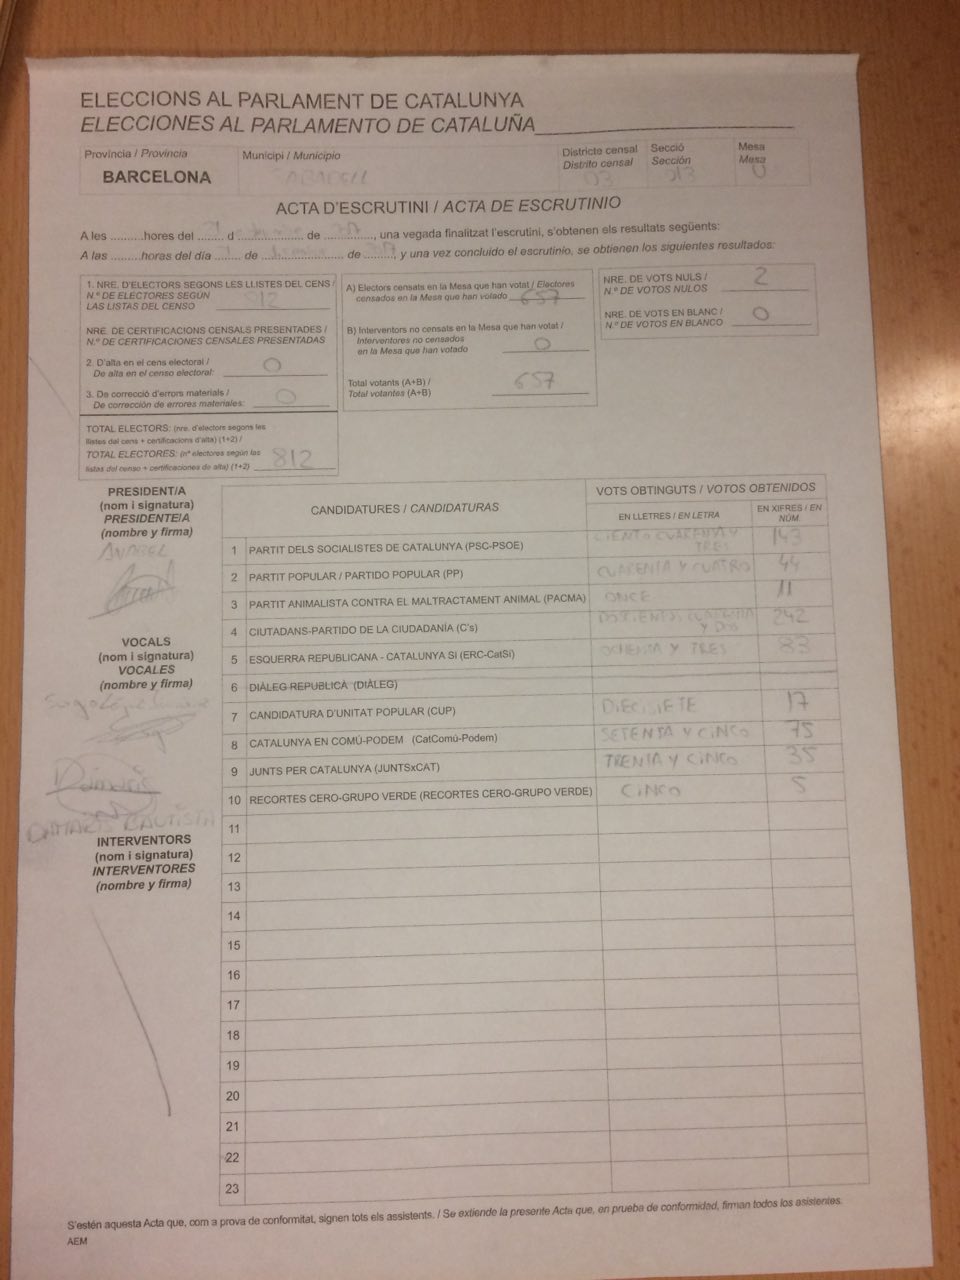 ELECCIONS AL PARLAMENT DE CATALUNYA
ELECCIONES AL PARLAMENTO DE CATALUÑA
Província / Provincia
BARCELONA
Municipi / Municipio
SABADELL
Districte censal
Distrito censal
03
Secció
Sección
013
Mesa
Mesa
U
ACTA D'ESCRUTINI / ACTA DE ESCRUTINIO
A les .........hores del ........ d .................... de ..............., una vegada finalitzat l'escrutini, s'obtenen els resultats següents:
A las .........horas del día ....... de ......................... de ........, y una vez concluido el escrutinio, se obtienen los siguientes resultados:
1. NRE. D'ELECTORS SEGONS LES LLISTES DEL CENS /
N.º DE ELECTORES SEGÚN
LAS LISTAS DEL CENSO 812
NRE. DE CERTIFICACIONS CENSALS PRESENTADES /
N.º DE CERTIFICACIONES CENSALES PRESENTADAS
2. D'alta en el cens electoral /
De alta en el censo electoral: 0
3. De correcció d'errors materials /
De corrección de errores materiales: 0
TOTAL ELECTORS: (nre. d'electors segons les
llistes del cens + certificacions d'alta) (1+2) /
TOTAL ELECTORES: (nº electores según las
listas del censo + certificaciones de alta) (1+2) 812
A) Electors censats en la Mesa que han votat / Electores
censados en la Mesa que han votado 657
B) Interventors no censats en la Mesa que han votat /
Interventores no censados
en la Mesa que han votado 0
Total votants (A+B) /
Total votantes (A+B) 657
NRE. DE VOTS NULS /
N.º DE VOTOS NULOS 2
NRE. DE VOTS EN BLANC /
N.º DE VOTOS EN BLANCO 0
PRESIDENT/A
(nom i signatura)
PRESIDENTE/A
(nombre y firma)
ANABEL
VOCALS
(nom i signatura)
VOCALES
(nombre y firma)
Damaris
DAMARIS BAUTISTA
INTERVENTORS
(nom i signatura)
INTERVENTORES
(nombre y firma)
CANDIDATURES / CANDIDATURAS
VOTS OBTINGUTS / VOTOS OBTENIDOS
EN LLETRES / EN LETRA
EN XIFRES / EN
NÚM.
1 PARTIT DELS SOCIALISTES DE CATALUNYA (PSC-PSOE) CIENTO CUARENTA Y TRES 143
2 PARTIT POPULAR / PARTIDO POPULAR (PP) CUARENTA Y CUATRO 44
3 PARTIT ANIMALISTA CONTRA EL MALTRACTAMENT ANIMAL (PACMA) ONCE 11
4 CIUTADANS-PARTIDO DE LA CIUDADANÍA (C's) DOSCIENTOS CUARENTA Y DOS 242
5 ESQUERRA REPUBLICANA - CATALUNYA SÍ (ERC-CatSí) OCHENTA Y TRES 83
6 DIÀLEG REPUBLICÀ (DIÀLEG)
7 CANDIDATURA D'UNITAT POPULAR (CUP) DIECISIETE 17
8 CATALUNYA EN COMÚ-PODEM (CatComú-Podem) SETENTA Y CINCO 75
9 JUNTS PER CATALUNYA (JUNTSxCAT) TRENTA Y CINCO 35
10 RECORTES CERO-GRUPO VERDE (RECORTES CERO-GRUPO VERDE) CINCO 5
11
12
13
14
15
16
17
18
19
20
21
22
23
S'estén aquesta Acta que, com a prova de conformitat, signen tots els assistents. / Se extiende la presente Acta que, en prueba de conformidad, firman todos los asistentes.
AEM